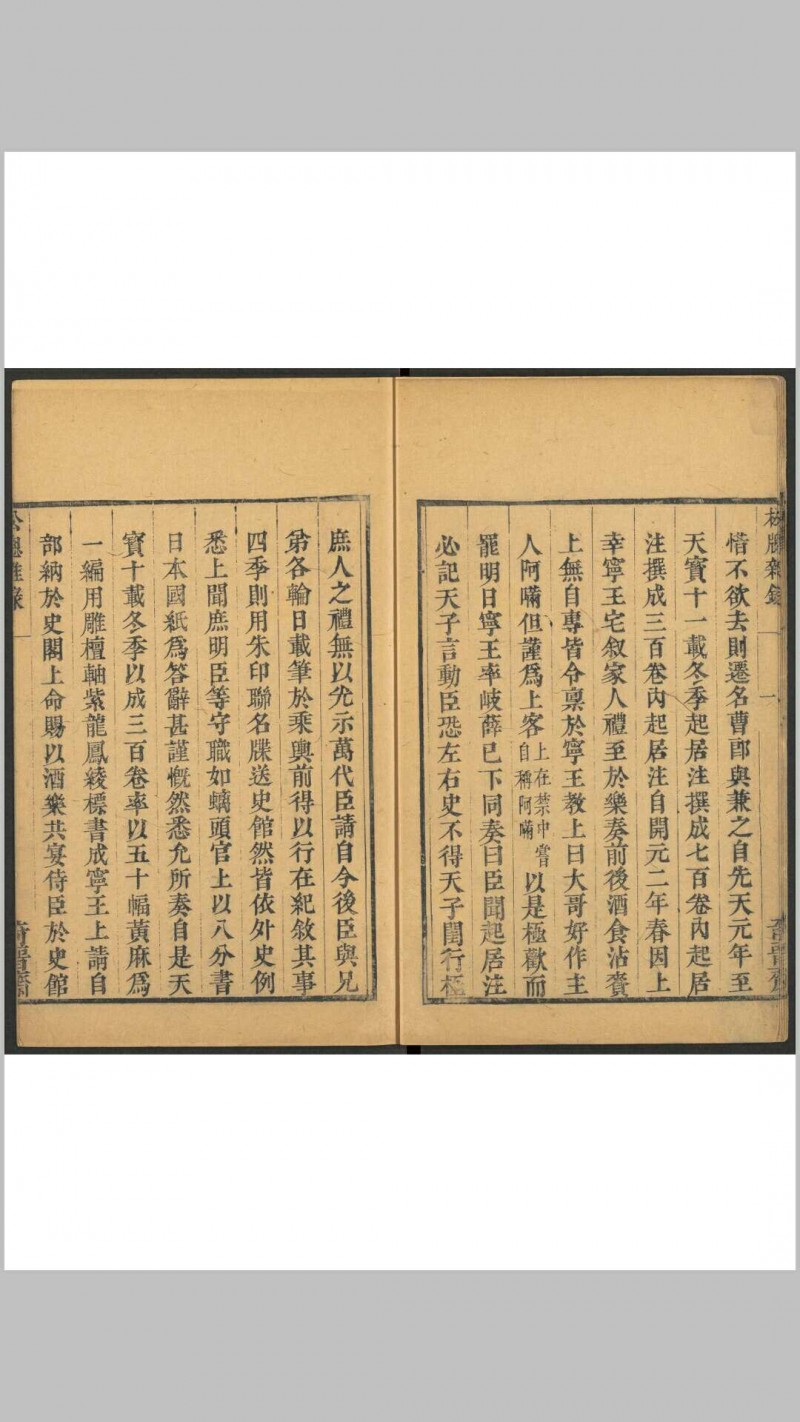 松牕雜錄
一
奇晉齋
惜不欲去則遷名曹郎與兼之自先天元年至
天寶十一載冬季起居注撰成七百卷內起居
注撰成三百卷內起居注自開元二年春因上
幸寧王宅叙家人禮至於樂奏前後酒食沾賚
上無自專皆令稟於寧王教上曰大哥好作主
人阿瞞但謹爲上客上在禁中嘗自稱阿瞞以是極歡而
罷明日寧王率岐薛已下同奏曰臣聞起居注
必記天子言動臣恐左右史不得天子閨行極
庶人之禮無以光示萬代臣請自今後臣與兄
弟各輪日載筆於乘輿前得以行在紀敘其事
四季則用朱印聯名牒送史館然皆依外史例
悉上聞庶明臣等守職如螭頭官上以八分書
日本國紙爲答辭甚謹慨然悉允所奏自是天
寶十載冬季以成三百卷率以五十幅黃麻爲
一編用雕檀軸紫龍鳳綾標書成寧王上請自
部納於史閣上命賜以酒樂共宴侍臣於史館
松牕雜錄
一
奇晉齋